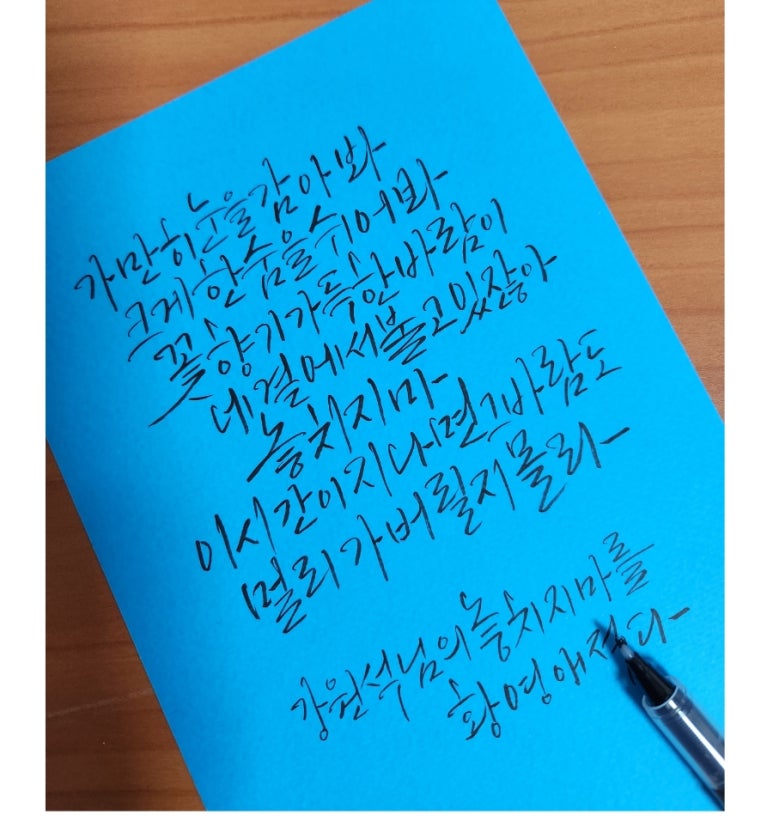 가만히 눈을 감아봐
크게 한숨을 쉬어봐
꽃향기 가득한 바람이
네 곁에서 불고 있잖아
놓치지마
이 시간이 지나면 그 바람도
멀리 가버릴지 몰라
강원석님의 놓치지마를
황영애 적다